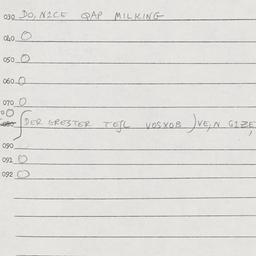 030 DO, NICE GAP MILKING
040 O
050 O
060 O
070 O
080 DER GRESTER TEJL VOSXOB )VE,N GIZE,
090
091 O
092 O